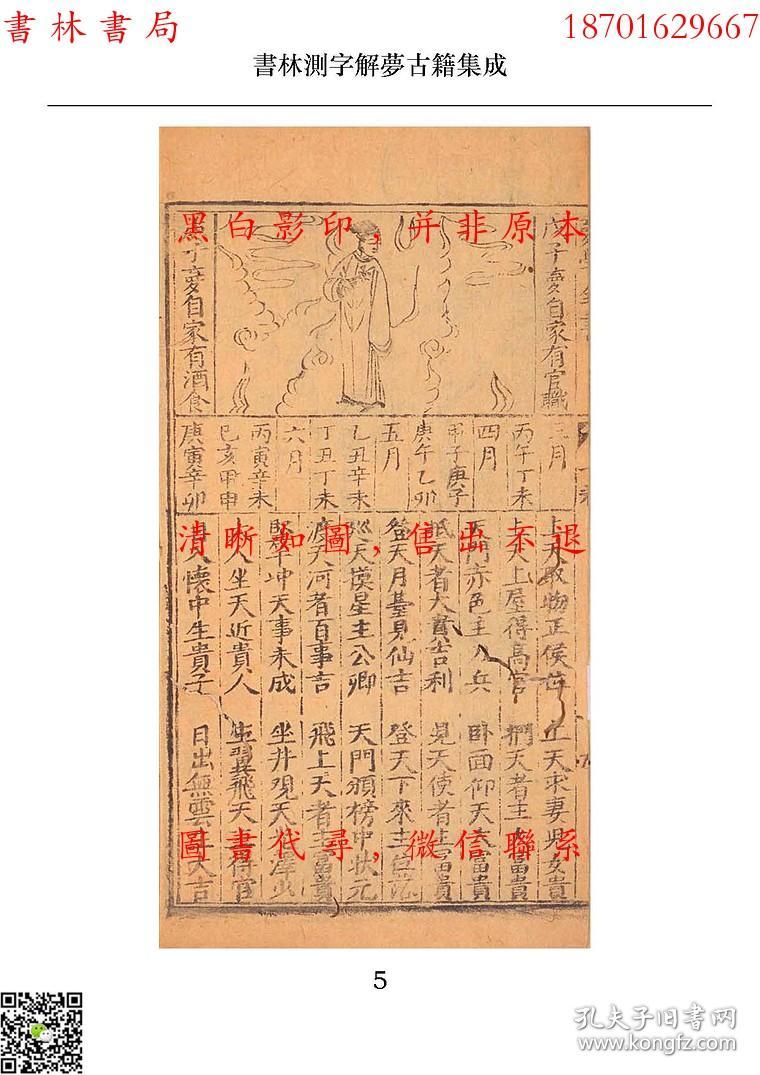 書林書局
18701629667
書林測字解夢古籍集成
黑白影印，并非原本
子夢自家有官職
子夢自家有酒食
三月
丙午丁未
四月
甲子庚子
庚午乙卯
五月
乙丑辛未
丁丑丁未
六月
丙寅辛未
己亥甲申
庚寅辛卯
清晰如圖，售出不退
上天取物正侯位
上天求妻兒女貴
上天上屋得高官
捫天者主大富貴
天門赤色主 兵
卧面仰天大富貴
天者大貴吉利
見天使者主富貴
登天月臺見仙吉
登天下來主
天摸星主公卿
天門頒榜中狀元
渡天河者百事吉
飛上天者主富貴
冲天事未成
坐井观天
人坐天近貴人
生翼飛天主得官
入懷中生貴子
日出無雲 大吉
圖書代尋，微信聯系
5
孔夫子旧書网
www.kongfz.com